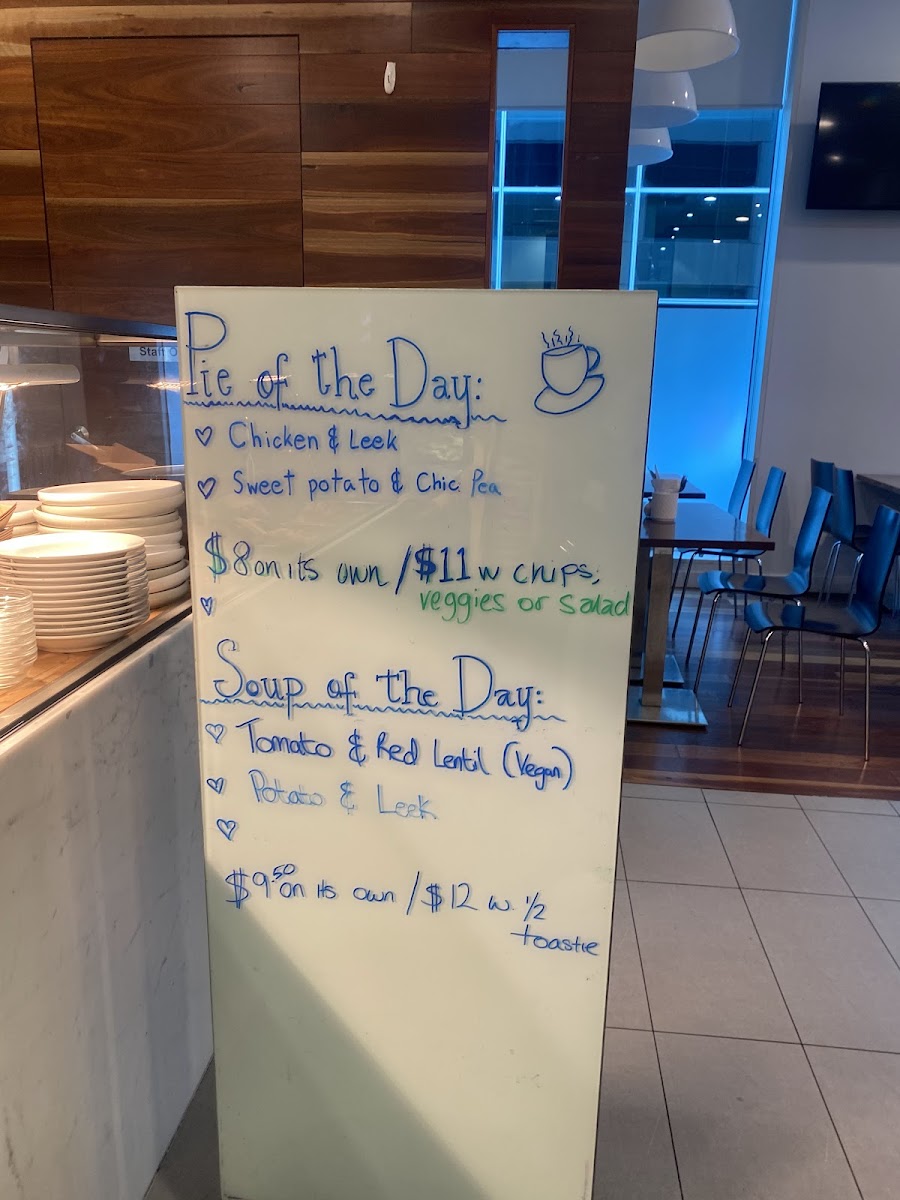 Staff O
Pie of the Day:
♡ Chicken & Leek
♡ Sweet potato & Chic Pea
$8 on its own / $11 w chips,
veggies or salad
♡
Soup of the Day:
♡ Tomato & Red Lentil (Vegan)
♡ Potato & Leek
♡
$9.50 on its own / $12 w. 1/2
toastie